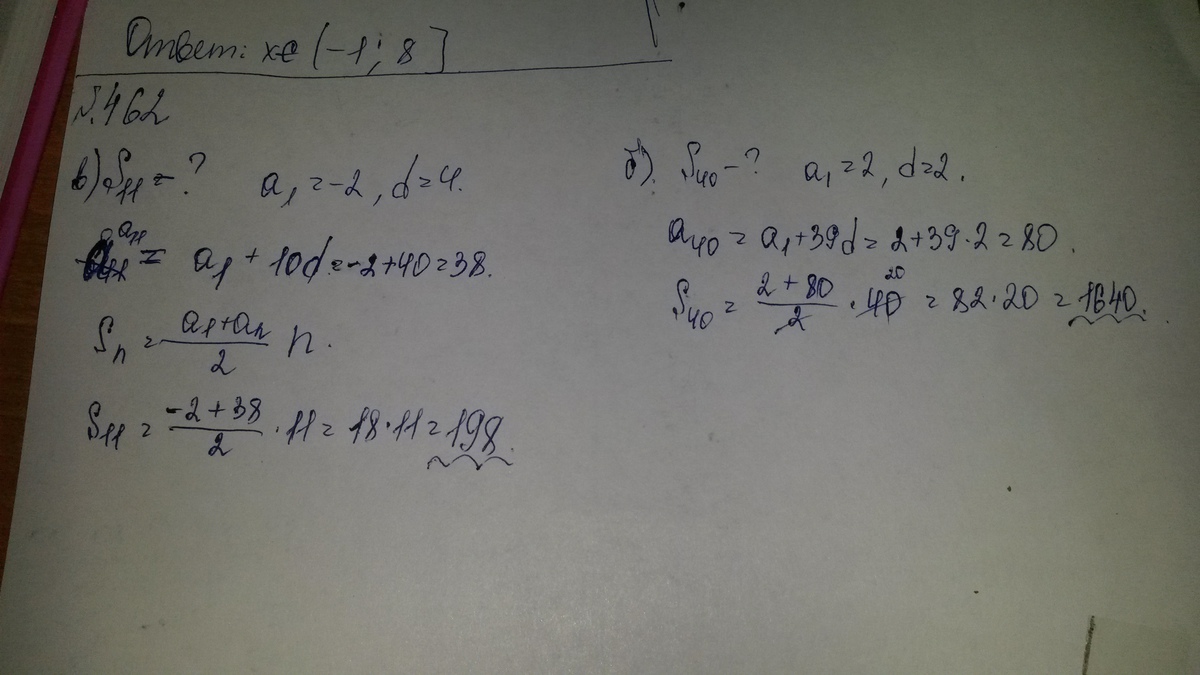 Ответ: x∈(-1; 8]
№462
в) S₁₁ = ? a₁ = -2, d = 4.
a₁₁ = a₁ + 10d = -2 + 40 = 38.
Sₙ = (a₁ + aₙ)/2 n.
S₁₁ = (-2 + 38)/2 · 11 = 18 · 11 = 198.
б) S₄₀ - ? a₁ = 2, d = 2.
a₄₀ = a₁ + 39d = 2 + 39 · 2 = 80.
S₄₀ = (2 + 80)/2 · 40 20 = 82 · 20 = 1640.